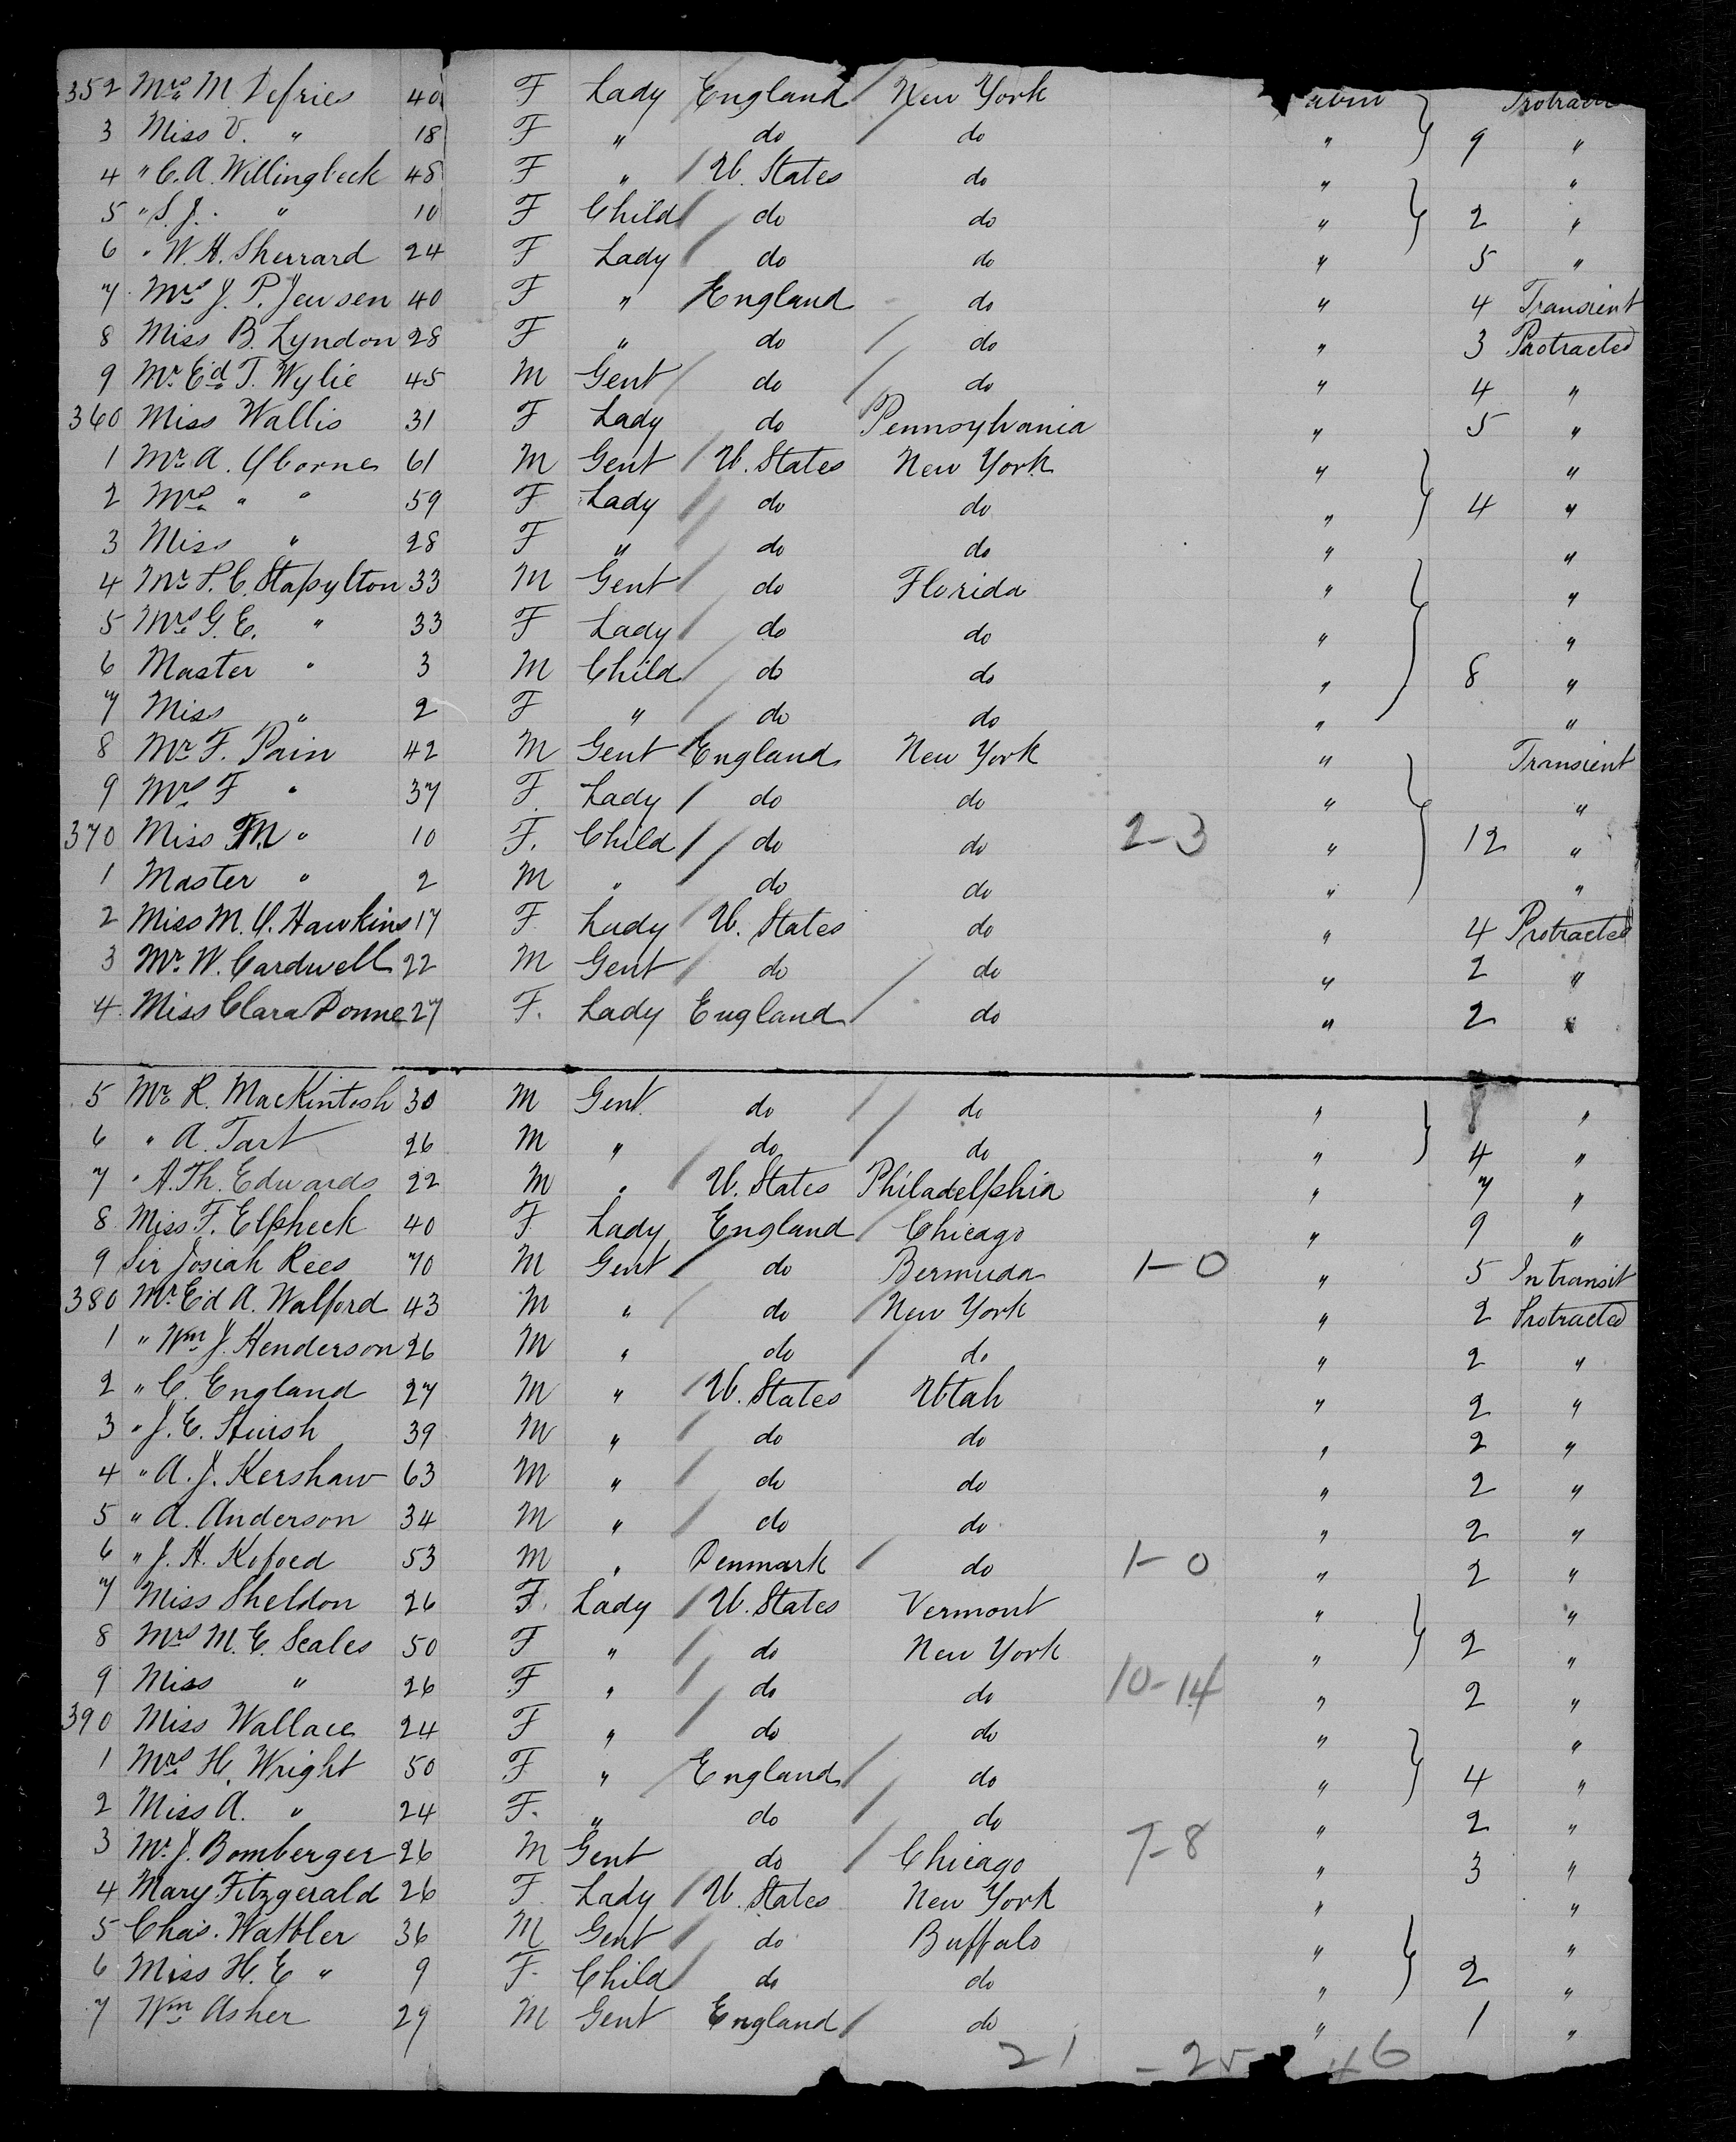 352 Mrs M Defries 40 F Lady England New York Protrac
3 Miss V. " 18 F " do do " 9 "
4 " C. A. Willingbeck 48 F " U. States do " "
5 " S. J. " 10 F Child do do " 2 "
6 " W. H. Sherrard 24 F Lady do do " 5 "
7 Mrs J. P. Jewsen 40 F " England do " 4 Transient
8 Miss B. Lyndon 28 F " do do " 3 Protracted
9 Mr Ed T. Wylie 45 M Gent do do " 4 "
360 Miss Wallis 31 F Lady do Pennsylvania " 5 "
1 Mr A. 61 M Gent U. States New York " "
2 Mrs " " 59 F Lady do do " 4 "
3 Miss " 28 F " do do " "
4 Mr P. C. Stapylton 33 M Gent do Florida " "
5 Mrs G. E. " 33 F Lady do do " "
6 Master " 3 M Child do do " 8 "
7 Miss " 2 F " do do " "
8 Mr F. Pain 42 M Gent England New York " Transient
9 Mrs F " 37 F Lady do do " "
370 Miss M. " 10 F. Child do do 2-3 " 12 "
1 Master " 2 M " do do " "
2 Miss M. Y. Hawkins 17 F Lady U. States do " 4 Protracted
3 Mr W. Cardwell 22 M Gent do do " 2 "
4 Miss Clara Donne 27 F. Lady England do " 2 "
5 Mr R. MacKintosh 30 M Gent do do " "
6 " A. Tart 26 M " do do " 4 "
7 " A. Th. Edwards 22 M " U. States Philadelphia " 7 "
8 Miss F. Elpheck 40 F Lady England Chicago " 9 "
9 Sir Josiah Rees 70 M Gent do Bermuda 1-0 " 5 In transit
380 Mr Ed A. Walford 43 M " do New York " 2 Protracted
1 " Wm J. Henderson 26 M " do do " 2 "
2 " C. England 27 M " U. States Utah " 2 "
3 " J. E. Huish 39 M " do do " 2 "
4 " A. J. Kershaw 63 M " do do " 2 "
5 " A. Anderson 34 M " do do " 2 "
6 " J. H. Kofoed 53 M " Denmark do 1-0 " 2 "
7 Miss Sheldon 26 F. Lady U. States Vermont " "
8 Mrs M. E. Scales 50 F " do New York " 2 "
9 Miss " 26 F " do do 10-14 " 2 "
390 Miss Wallace 24 F " do do " "
1 Mrs H. Wright 50 F " England do " 4 "
2 Miss A. " 24 F. " do do " 2 "
3 Mr J. Bomberger 26 M Gent do Chicago 7-8 " 3 "
4 Mary Fitzgerald 26 F Lady U. States New York " "
5 Chas. Wattler 36 M Gent do Buffalo " "
6 Miss H. E " 9 F. Child do do " 2 "
7 Wm Asher 29 M Gent England do " 1 "
21 - 25 46